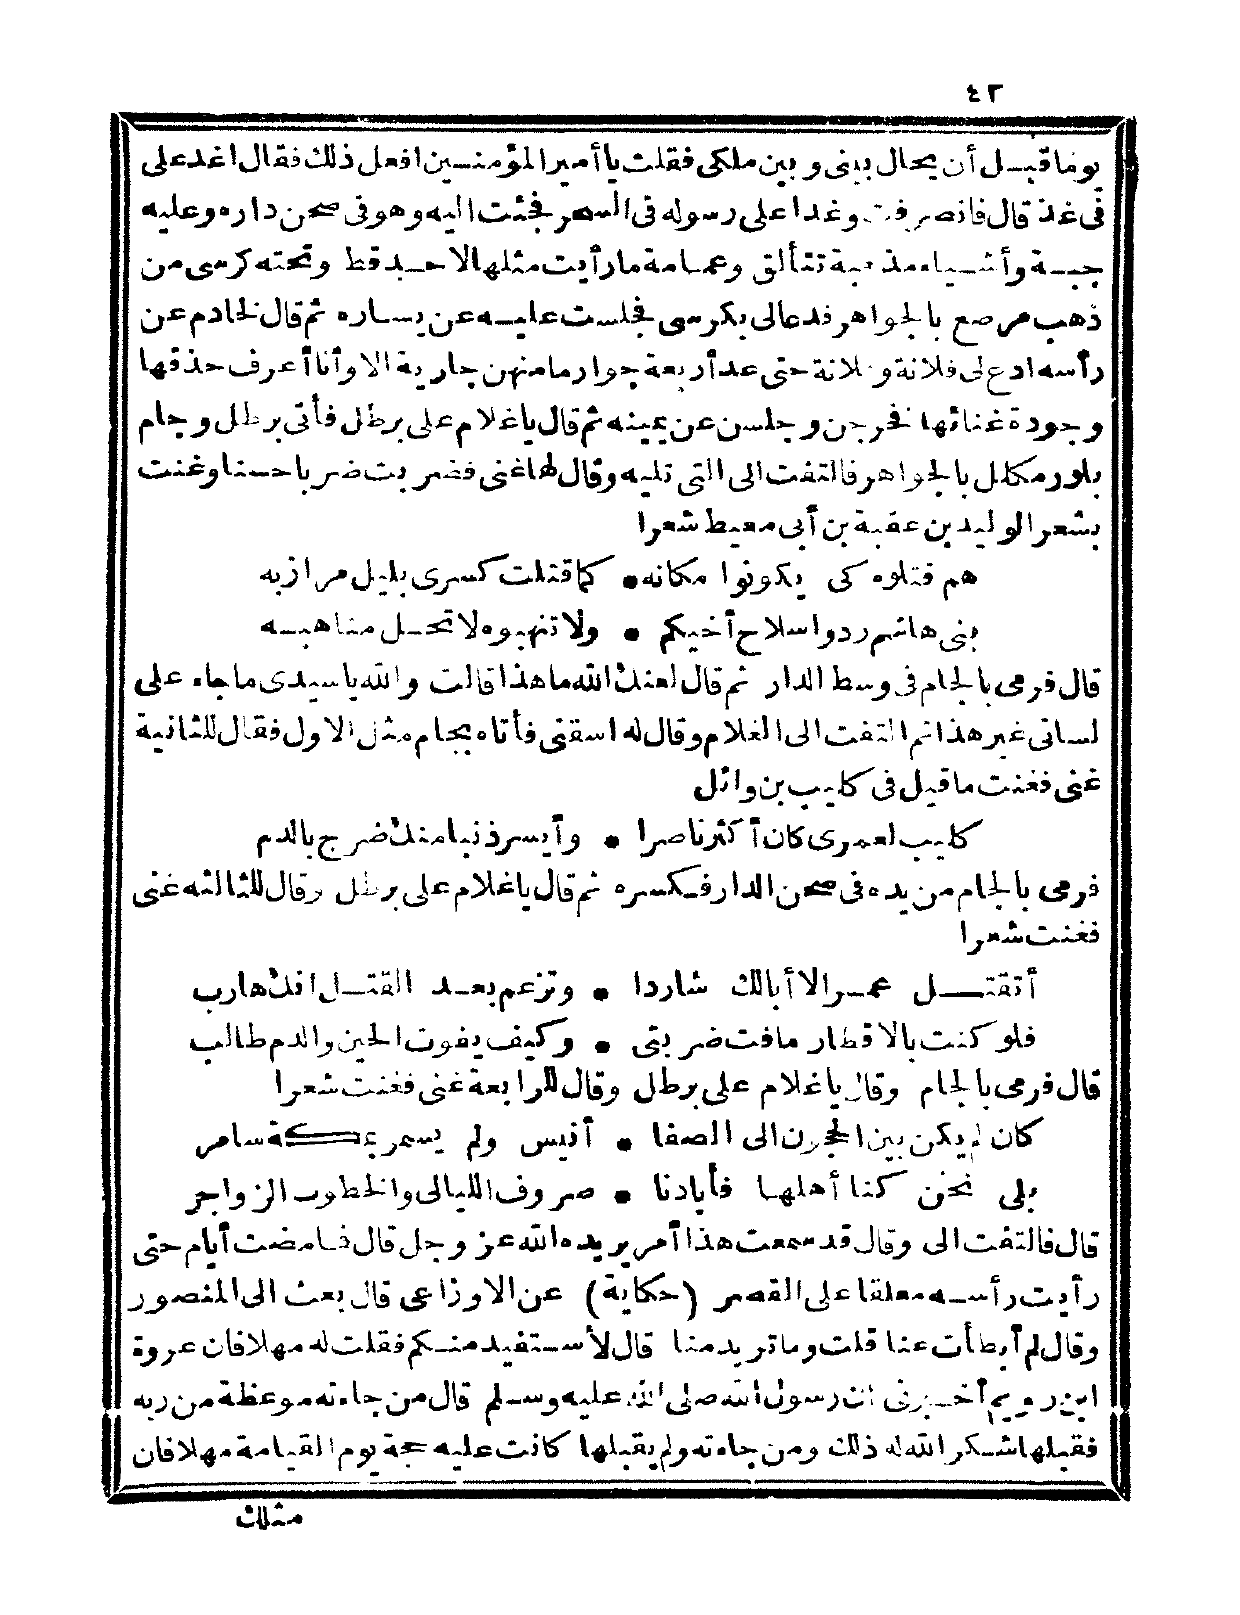 ٤٢
يوما قبل أن يحال بيني وبين ملكي فقلت يا أمير المؤمنين افعل ذلك فقال اغد على
في غد قال فانصرفت وغدا على رسوله في السحر فجئت اليه وهو في صحن داره وعليه
جبة وأشياء مذهبة تتألق وعمامة ما رأيت مثلها لاحد قط وتحته كرسي من
ذهب مرصع بالجواهر فدعا لي بكرسي فجلست عليه عن يساره ثم قال لخادم عن
رأسه ادع لي فلانة وفلانة حتى عد أربعة جوار ما منهن جارية الا وأنا أعرف حذقها
وجودة غنائها فخرجن وجلسن عن يمينه ثم قال يا غلام على برطل فأتى برطل وجام
بلور مكلل بالجواهر فالتفت الى التي تليه وقال لها غنى فضربت ضربا حسنا وغنت
بشعر الوليد بن عقبة بن أبي معيط شعرا
هم قتلوه كي يكونوا مكانه • كما قتلت كسرى بليل مرازبه
بني هاشم ردوا سلاح أخيكم • ولا تنهبوه لا تحل مناهبه
قال فرمى بالجام في وسط الدار ثم قال لعنك الله ما هذا قالت والله يا سيدي ما جاء على
لساني غير هذا ثم التفت الى الغلام وقال له اسقني فأتاه بجام مثل الاول فقال للثانية
غنى فغنت ما قيل في كليب بن وائل
كليب لعمري كان أكثر ناصرا • وأيسر ذنبا منك ضرج بالدم
فرمى بالجام من يده في صحن الدار فكسره ثم قال يا غلام على برطل وقال للثالثه غنى
فغنت شعرا
أتقتل عمرا لا أبالك شاردا • وتزعم بعد القتل انك هارب
فلو كنت بالاقطار ما فت ضربتى • وكيف يفوت الحين والدم طالب
قال فرمى بالجام وقال يا غلام على برطل وقال للرابعة غنى فغنت شعرا
كان لم يكن بين الحجون الى الصفا • أنيس ولم يسمر بمكة سامر
بلى نحن كنا أهلها فأبادنا • صروف الليالي والخطوب الزواجر
قال فالتفت الى وقال قد سمعت هذا أمر يريده الله عز وجل قال فما مضت أيام حتى
رأيت رأسه معلقا على القصر (حكاية) عن الاوزاعي قال بعث الى المنصور
وقال لم أبطأت عنا قلت وما تريد منا قال لأستفيد منكم فقلت له مهلا فان عروة
ابن رويم أخبرني ان رسول الله صلى الله عليه وسلم قال من جاءته موعظة من ربه
فقبلها شكر الله له ذلك ومن جاءته ولم يقبلها كانت عليه حجة يوم القيامة مهلا فان
مثلك